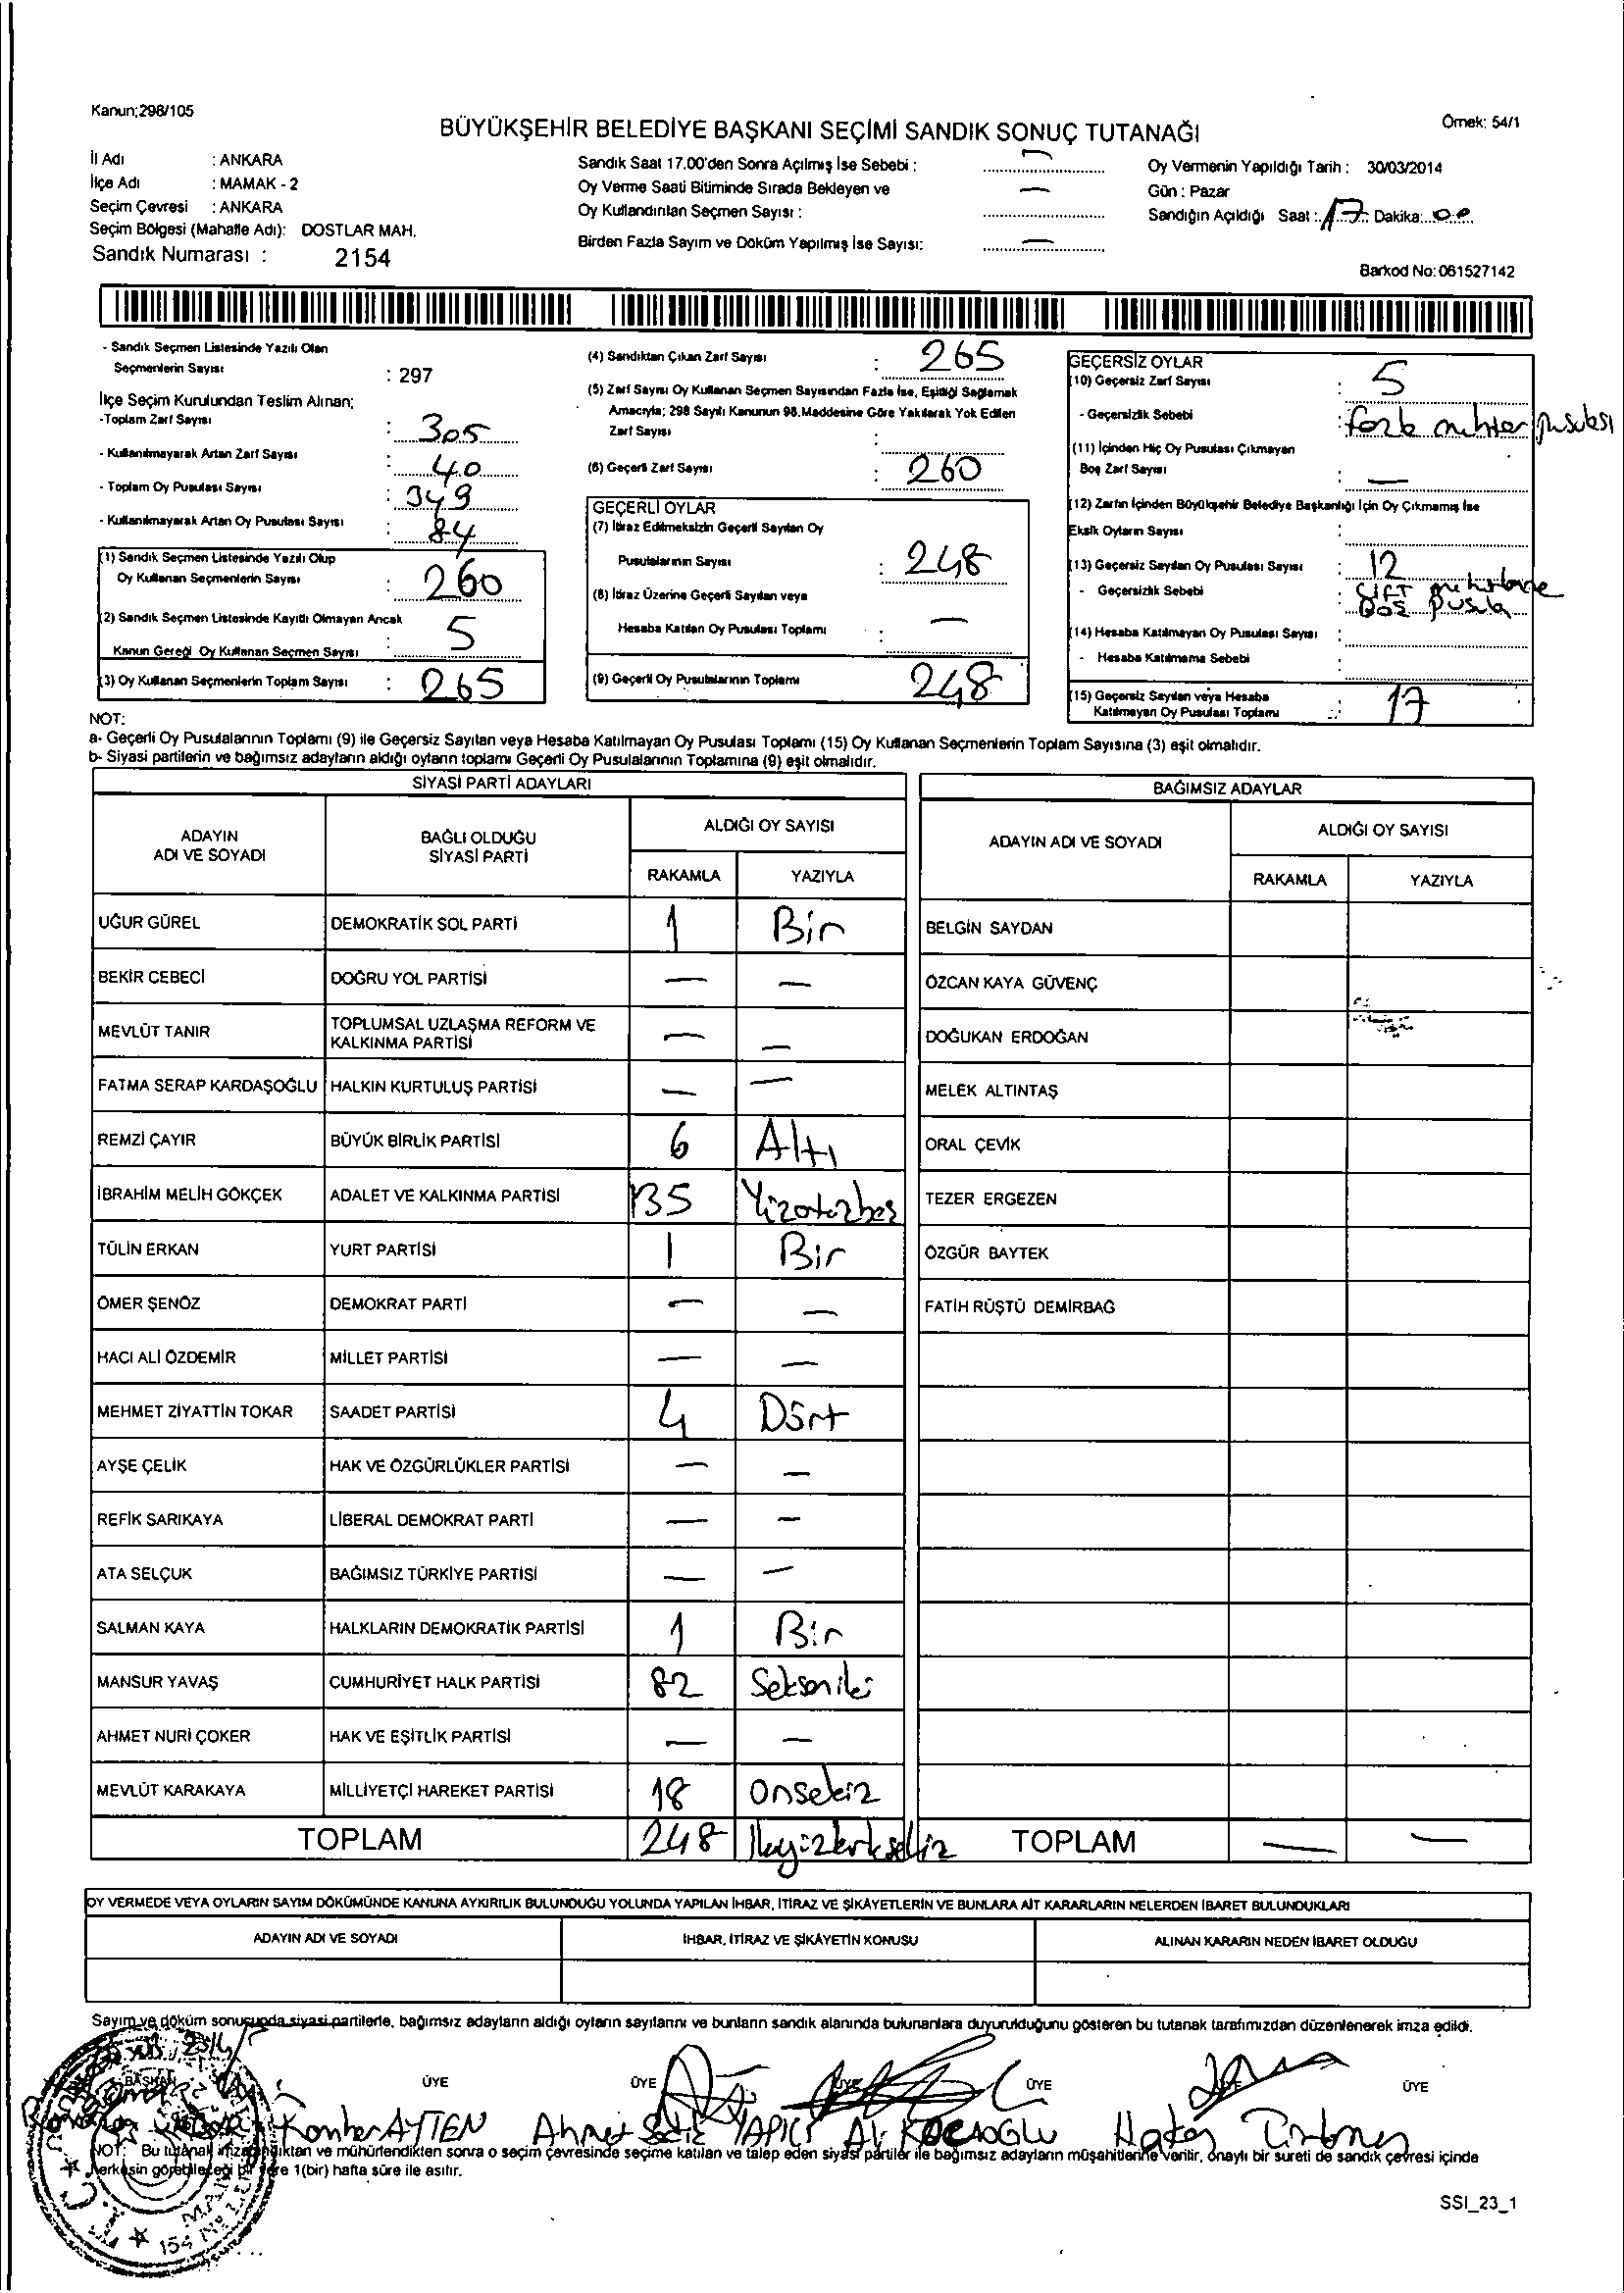 Kanun;298/105
Örnek: 54/1
BÜYÜKŞEHİR BELEDİYE BAŞKANI SEÇİMİ SANDIK SONUÇ TUTANAĞI
İl Adı : ANKARA
İlçe Adı : MAMAK - 2
Seçim Çevresi : ANKARA
Seçim Bölgesi (Mahalle Adı): DOSTLAR MAH.
Sandık Numarası : 2154
Sandık Saat 17.00'den Sonra Açılmış İse Sebebi : —
Oy Verme Saati Bitiminde Sırada Bekleyen ve
Oy Kullandırılan Seçmen Sayısı : —
Birden Fazla Sayım ve Döküm Yapılmış İse Sayısı: —
Oy Vermenin Yapıldığı Tarih : 30/03/2014
Gün : Pazar
Sandığın Açıldığı Saat : 17 Dakika: 00
Barkod No: 061527142
- Sandık Seçmen Listesinde Yazılı Olan
Seçmenlerin Sayısı : 297
İlçe Seçim Kurulundan Teslim Alınan;
-Toplam Zarf Sayısı : 305
- Kullanılmayarak Artan Zarf Sayısı : 40
- Toplam Oy Pusulası Sayısı : 349
- Kullanılmayarak Artan Oy Pusulası Sayısı : 84
(1) Sandık Seçmen Listesinde Yazılı Olup
Oy Kullanan Seçmenlerin Sayısı : 260
(2) Sandık Seçmen Listesinde Kayıtlı Olmayan Ancak
Kanun Gereği Oy Kullanan Seçmen Sayısı : 5
(3) Oy Kullanan Seçmenlerin Toplam Sayısı : 265
(4) Sandıktan Çıkan Zarf Sayısı : 265
(5) Zarf Sayısı Oy Kullanan Seçmen Sayısından Fazla İse, Eşitliği Sağlamak
Amacıyla; 298 Sayılı Kanunun 98.Maddesine Göre Yakılarak Yok Edilen
Zarf Sayısı :
(6) Geçerli Zarf Sayısı : 260
GEÇERLİ OYLAR
(7) İtiraz Edilmeksizin Geçerli Sayılan Oy
Pusulalarının Sayısı : 248
(8) İtiraz Üzerine Geçerli Sayılan veya
Hesaba Katılan Oy Pusulası Toplamı : —
(9) Geçerli Oy Pusulalarının Toplamı 248
GEÇERSİZ OYLAR
(10) Geçersiz Zarf Sayısı : 5
- Geçersizlik Sebebi : fazla muhtar pusulası
(11) İçinden Hiç Oy Pusulası Çıkmayan
Boş Zarf Sayısı : —
(12) Zarfın İçinden Büyükşehir Belediye Başkanlığı İçin Oy Çıkmamış İse
Eksik Oyların Sayısı :
(13) Geçersiz Sayılan Oy Pusulası Sayısı : 12
- Geçersizlik Sebebi : ÇİFT mühürleme
Boş Pusula
(14) Hesaba Katılmayan Oy Pusulası Sayısı :
- Hesaba Katılmama Sebebi :
(15) Geçersiz Sayılan veya Hesaba
Katılmayan Oy Pusulası Toplamı : 17
NOT:
a- Geçerli Oy Pusulalarının Toplamı (9) ile Geçersiz Sayılan veya Hesaba Katılmayan Oy Pusulası Toplamı (15) Oy Kullanan Seçmenlerin Toplam Sayısına (3) eşit olmalıdır.
b- Siyasi partilerin ve bağımsız adayların aldığı oyların toplamı Geçerli Oy Pusulalarının Toplamına (9) eşit olmalıdır.
SİYASİ PARTİ ADAYLARI
ADAYIN
ADI VE SOYADI
BAĞLI OLDUĞU
SİYASİ PARTİ
ALDIĞI OY SAYISI
RAKAMLA YAZIYLA
UĞUR GÜREL DEMOKRATİK SOL PARTİ 1 Bir
BEKİR CEBECİ DOĞRU YOL PARTİSİ — —
MEVLÜT TANIR TOPLUMSAL UZLAŞMA REFORM VE
KALKINMA PARTİSİ — —
FATMA SERAP KARDAŞOĞLU HALKIN KURTULUŞ PARTİSİ — —
REMZİ ÇAYIR BÜYÜK BİRLİK PARTİSİ 6 Altı
İBRAHİM MELİH GÖKÇEK ADALET VE KALKINMA PARTİSİ 135 Yüzotuzbeş
TÜLİN ERKAN YURT PARTİSİ 1 Bir
ÖMER ŞENÖZ DEMOKRAT PARTİ — —
HACI ALİ ÖZDEMİR MİLLET PARTİSİ — —
MEHMET ZİYATTİN TOKAR SAADET PARTİSİ 4 Dört
AYŞE ÇELİK HAK VE ÖZGÜRLÜKLER PARTİSİ — —
REFİK SARIKAYA LİBERAL DEMOKRAT PARTİ — —
ATA SELÇUK BAĞIMSIZ TÜRKİYE PARTİSİ — —
SALMAN KAYA HALKLARIN DEMOKRATİK PARTİSİ 1 Bir
MANSUR YAVAŞ CUMHURİYET HALK PARTİSİ 82 Seksaniki
AHMET NURİ ÇOKER HAK VE EŞİTLİK PARTİSİ — —
MEVLÜT KARAKAYA MİLLİYETÇİ HAREKET PARTİSİ 18 onsekiz
TOPLAM 248
BAĞIMSIZ ADAYLAR
ADAYIN ADI VE SOYADI
ALDIĞI OY SAYISI
RAKAMLA YAZIYLA
BELGİN SAYDAN
ÖZCAN KAYA GÜVENÇ
DOĞUKAN ERDOĞAN
MELEK ALTINTAŞ
ORAL ÇEVİK
TEZER ERGEZEN
ÖZGÜR BAYTEK
FATİH RÜŞTÜ DEMİRBAĞ
TOPLAM — —
OY VERMEDE VEYA OYLARIN SAYIM DÖKÜMÜNDE KANUNA AYKIRILIK BULUNDUĞU YOLUNDA YAPILAN İHBAR, İTİRAZ VE ŞİKÂYETLERİN VE BUNLARA AİT KARARLARIN NELERDEN İBARET BULUNDUKLARI
ADAYIN ADI VE SOYADI İHBAR, İTİRAZ VE ŞİKÂYETİN KONUSU ALINAN KARARIN NEDEN İBARET OLDUĞU
Sayım ve döküm sonucunda siyasi partilerle, bağımsız adayların aldığı oyların sayılarını ve bunların sandık alanında bulunanlara duyurulduğunu gösteren bu tutanak tarafımızdan düzenlenerek imza edildi.
BAŞKAN ÜYE ÜYE ÜYE ÜYE ÜYE ÜYE
AYTEN Ahmet Sadık YAPICI Ali KOCAOĞLU Hakan
NOT: Bu tutanak imzalandıktan ve mühürlendikten sonra o seçim çevresinde seçime katılan ve talep eden siyasi partiler ile bağımsız adayların müşahitlerine verilir, onaylı bir sureti de sandık çevresi içinde
herkesin görebileceği bir yere 1(bir) hafta süre ile asılır.
SSI_23_1